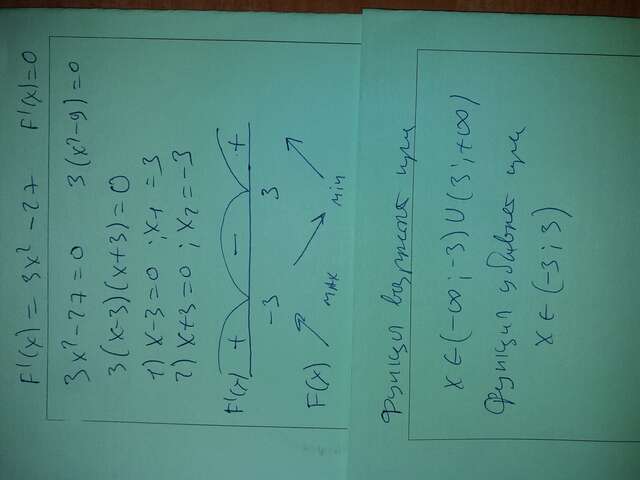 F'(x) = 3x² - 27 F'(x)=0
3x² - 27 = 0 3(x² - 9) = 0
3(x-3)(x+3) = 0
1) x-3=0 ; x₁ = 3
2) x+3=0 ; x₂ = -3
F'(x) + - +
-3 3
F(x) max min
Функция возрастает при
x ∈ (-∞ ; -3) ∪ (3 ; +∞)
Функция убывает при
x ∈ (-3 ; 3)